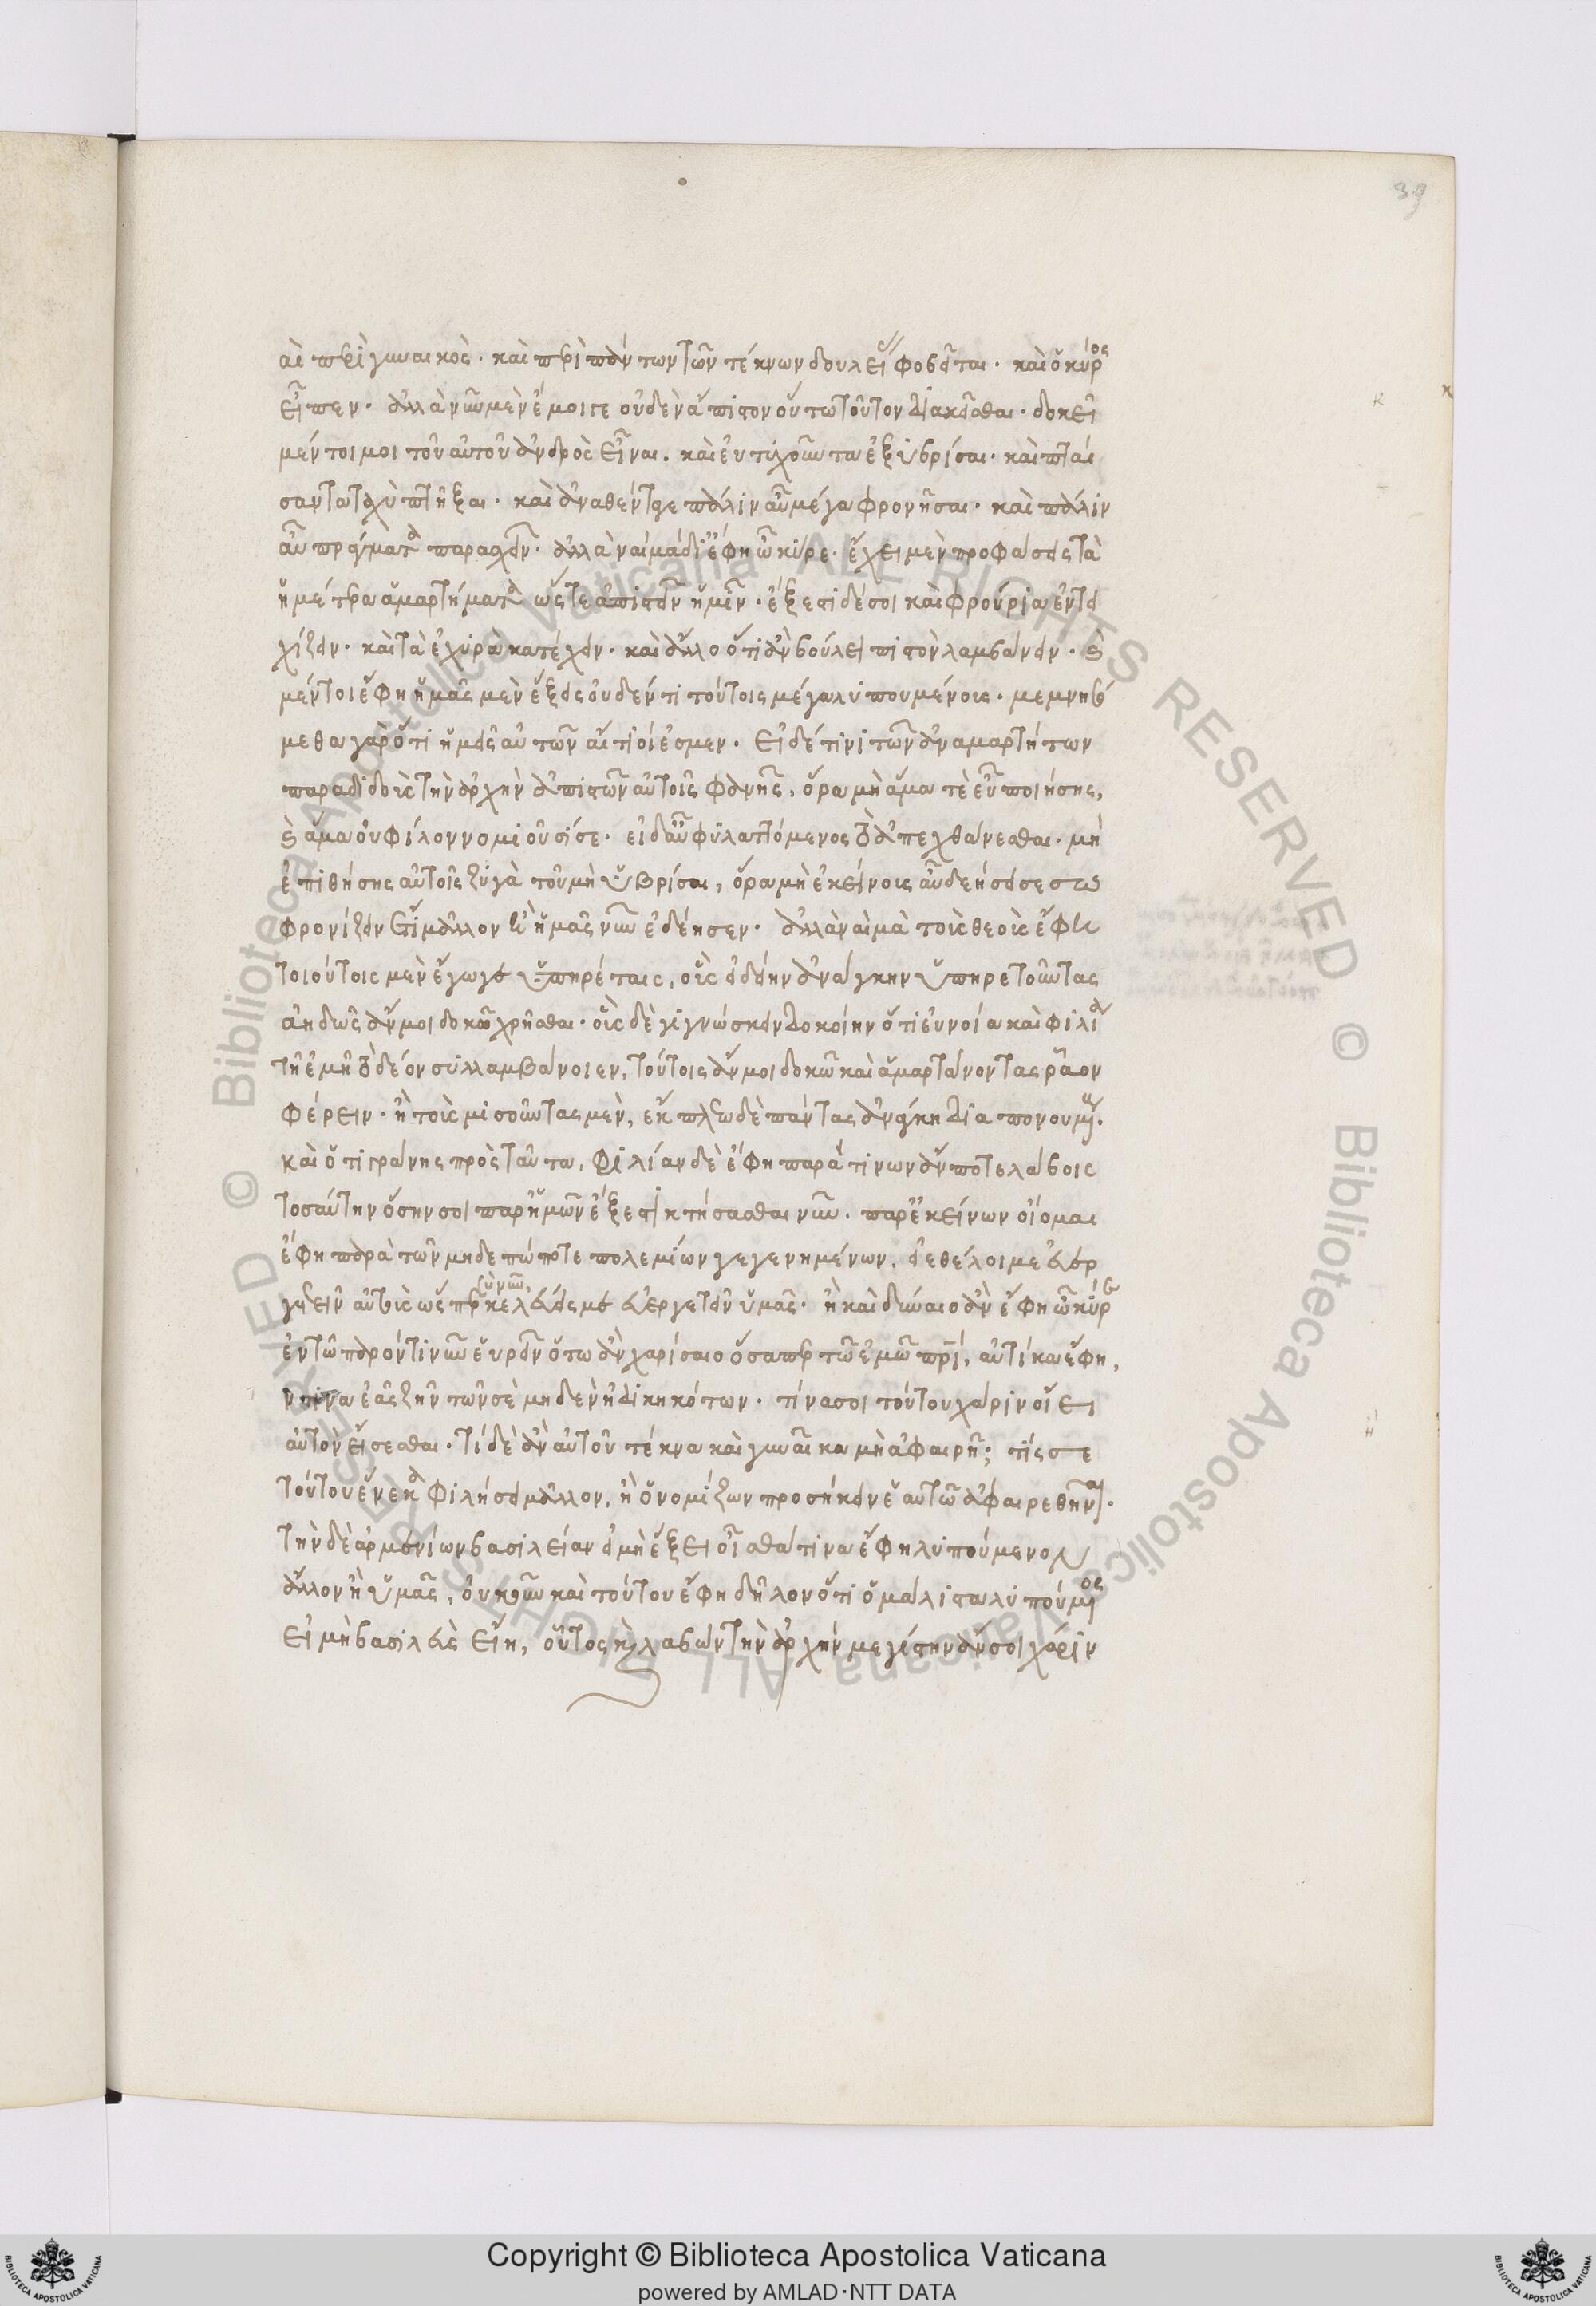 39
αὶ περὶ γυναικὸς. καὶ περὶ πάντων τῶν τέκνων δουλεῖ φοβεῖται. καὶ ὁ κύρος
εἶπεν. ἀλλὰ νῦν μὲν ἔμοιγε οὐδὲν ἄπιστον οὕτω τοῦτον διακεῖσθαι. δοκεῖ
μέντοι μοι τοῦ αὐτοῦ ἀνδρὸς εἶναι. καὶ εὐτυχοῦντα ἐξυβρίσαι. καὶ πταί
σαντα ταχὺ πτῆξαι. καὶ ἀναθέντα γε πάλιν αὖ μέγα φρονῆσαι. καὶ πάλιν
αὖ πράγματα παρασχεῖν. ἀλλὰ ναὶ μὰ δί ἔφη ὦ κύρε. ἔχει μὲν προφάσεις τὰ
ἡμέτερα ἁμαρτήματα ὥστε ἀπιστεῖν ἡμῖν. ἔξεστι δέ σοι καὶ φρούρια ἐντει
χίζειν. καὶ τὰ ἐχυρὰ κατέχειν. καὶ ἄλλο ὅτι ἂν βούλει πιστὸν λαμβάνειν. καὶ
μέντοι ἔφη ἡμᾶς μὲν ἕξεις οὐδέν τι τούτοις μέγα λυπουμένους. μεμνησό
μεθα γὰρ ὅτι ἡμεῖς αὐτῶν αἴτιοί ἐσμεν. εἰ δέ τινι τῶν ἀναμαρτήτων
παραδιδοὺς τὴν ἀρχὴν ἀπιστῶν αὐτοῖς φανῇς, ὅρα μὴ ἅμα τὲ εὖ ποιήσης,
καὶ ἅμα οὐ φίλον νομιοῦσί σε. εἰ δ αὖ φυλαττόμενος τὸ ἀπεχθάνεσθαι. μὴ
ἐπιθήσης αὐτοῖς ζυγὰ τοῦ μὴ ὑβρίσαι, ὅρα μὴ ἐκείνους αὖ δεήσει σε σω
φρονίζειν ἔτι μᾶλλον ἢ ἡμᾶς νῦν ἐδέησεν. ἀλλὰ ναὶ μὰ τοὺς θεοὺς ἔφη
τοιούτοις μὲν ἔγωγε ὑπηρέταις, οὓς εἰδείην ἀνάγκην ὑπηρετοῦντας
ἀηδῶς ἄν μοι δοκῶ χρῆσθαι. οὓς δὲ γιγνώσκειν δοκοίην ὅτι εὐνοία καὶ φιλία
τῇ ἐμῇ τὸ δέον συλλαμβάνοιεν, τούτους ἄν μοι δοκῶ καὶ ἁμαρτάνοντας ῥᾶον
φέρειν. ἢ τοὺς μισοῦντας μὲν, ἔκπλεω δὲ πάντας ἀνάγκη διαπονουμένους.
καὶ ὁ τιγράνης πρὸς ταῦτα, φιλίαν δὲ ἔφη παρά τινων ἄν ποτε λάβοις
τοσαύτην ὅσην σοι παρ ἡμῶν ἔξεστι κτήσασθαι νῦν. παρ ἐκείνων οἴομαι
ἔφη παρὰ τῶν μηδεπώποτε πολεμίων γεγενημένων. εἰ ἐθέλοιμι εὐερ
γετεῖν αὐτοὺς ὥσπερ σὺ νῦν κελεύεις με εὐεργετεῖν ὑμᾶς. ἢ καὶ δύναιο ἂν ἔφη ὦ κῦρε
ἐν τῷ παρόντι νῦν εὑρεῖν ὅτω ἂν χαρίσαιο ὅσαπερ τῶ ἐμῶ πατρί, αὐτίκα ἔφη,
ἤν τινα ἐᾷς ζῆν τῶν σὲ μηδὲν ἠδικηκότων. τίνα σοι τούτου χάριν οἴει
αὐτὸν εἴσεσθαι. τί δὲ ἂν αὐτοῦ τέκνα καὶ γυναῖκα μὴ ἀφαιρῇ; τίς σε
τούτου ἕνεκα φιλήσει μᾶλλον, ἢ ὁ νομίζων προσήκειν ἑαυτῶ ἀφαιρεθῆναι.
τὴν δὲ ἀρμενίων βασιλείαν εἰ μὴ ἕξει οἶσθά τινα ἔφη λυπούμενον
ἄλλον ἢ ὑμᾶς, οὐκοῦν καὶ τούτου ἔφη δῆλον ὅτι ὁ μάλιστα λυπούμενος
εἰ μὴ βασιλεὺς εἴη, οὗτος καὶ λαβὼν τὴν ἀρχὴν μεγίστην ἄν σοι χάριν